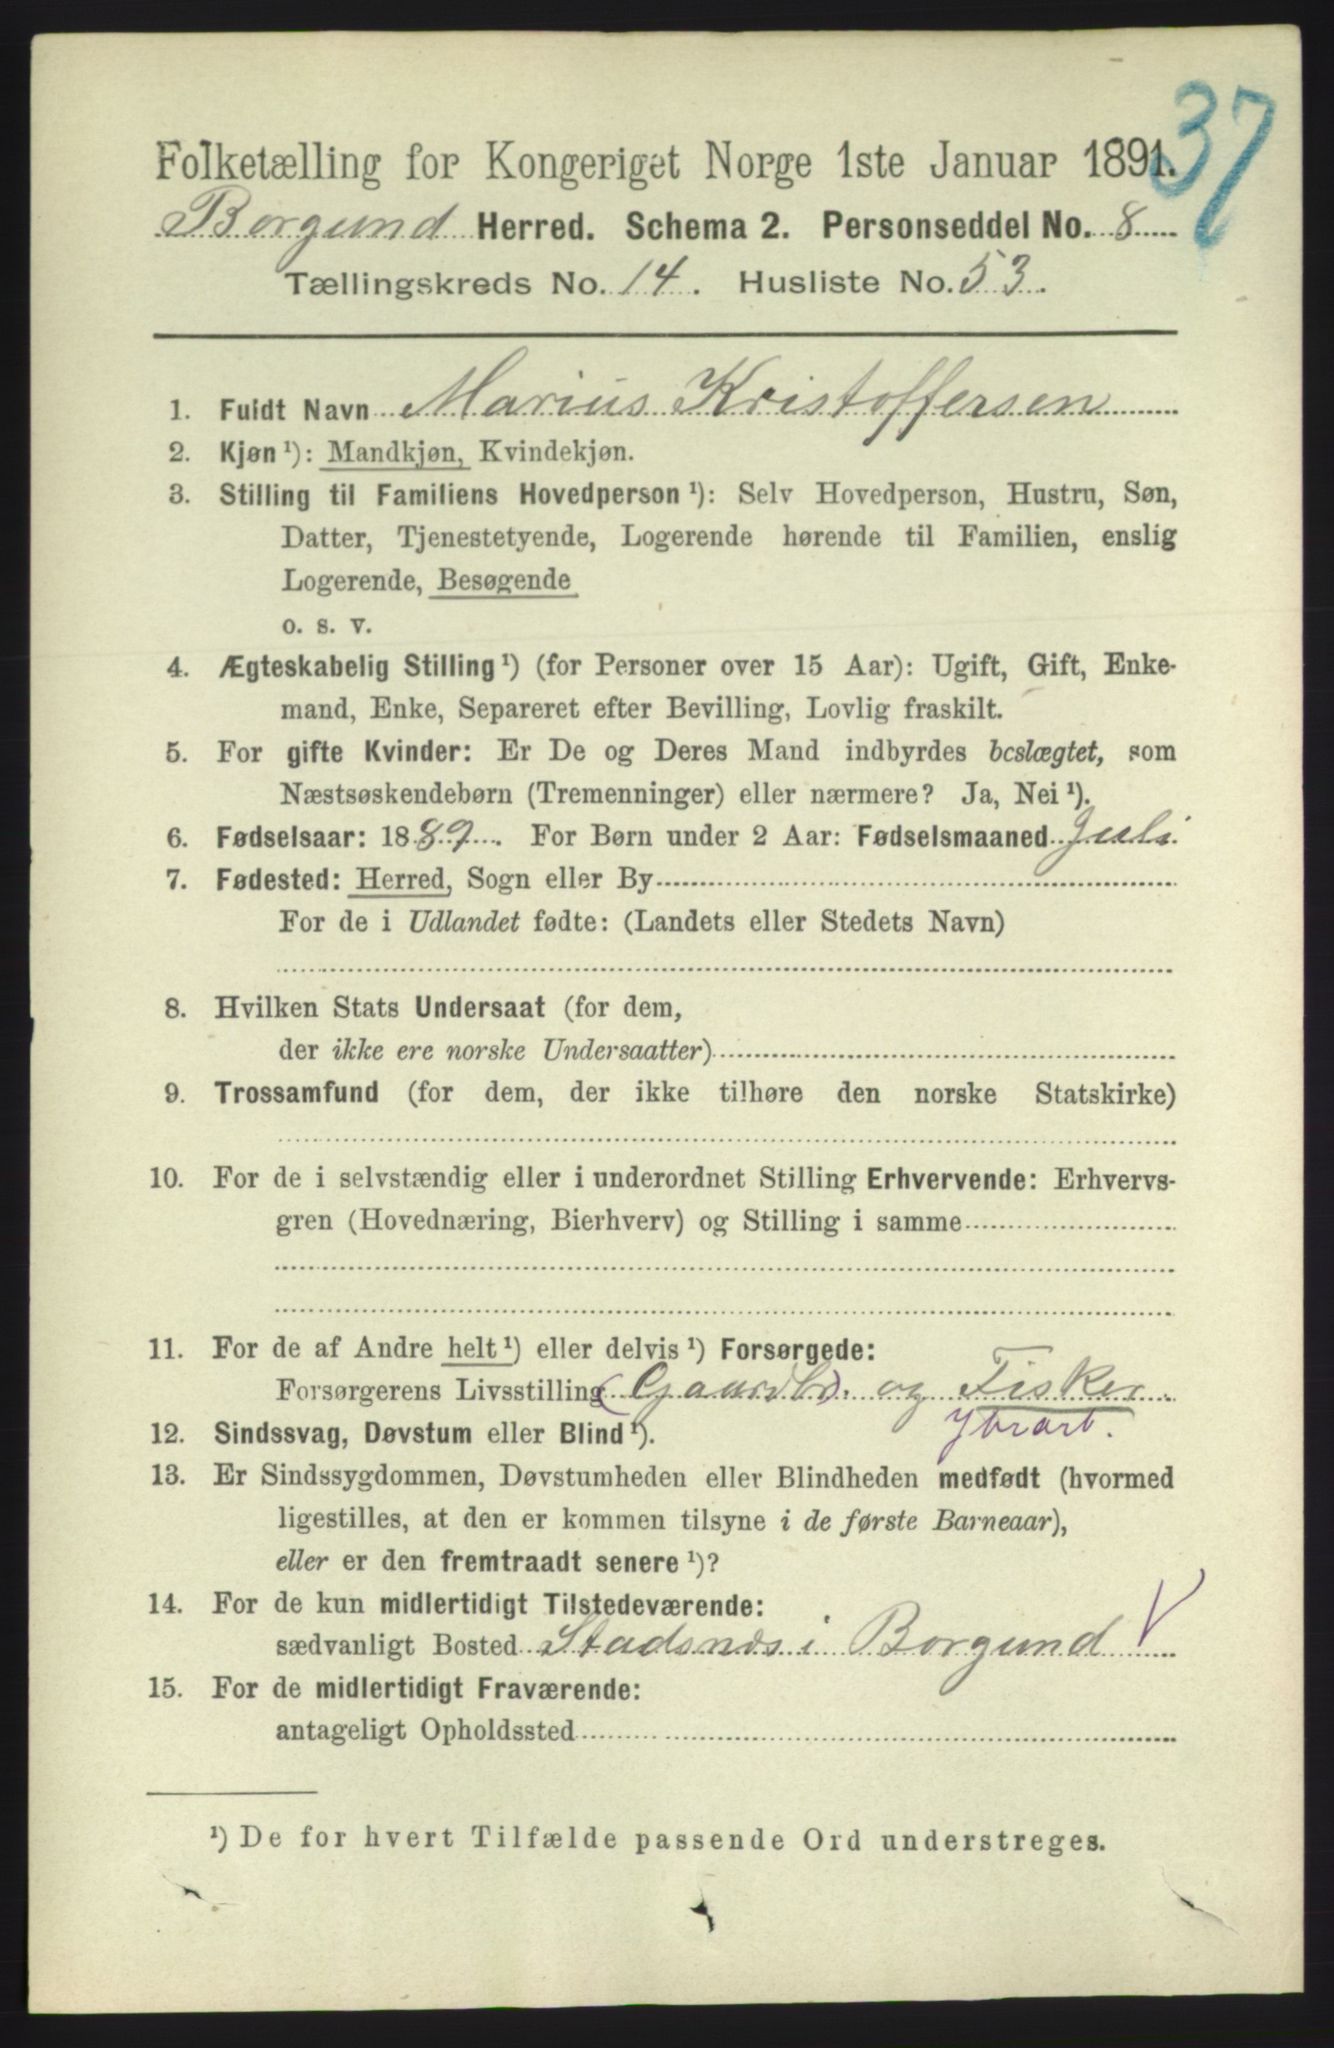 37
Folketælling for Kongeriget Norge 1ste Januar 1891.
Borgund Herred. Schema 2. Personseddel No. 8
Tællingskreds No. 14. Husliste No. 53.
1. Fuldt Navn Marius Kristoffersen
2. Kjøn ¹): Mandkjøn, Kvindekjøn.
3. Stilling til Familiens Hovedperson ¹): Selv Hovedperson, Hustru, Søn,
Datter, Tjenestetyende, Logerende hørende til Familien, enslig
Logerende, Besøgende
o. s. v.
4. Ægteskabelig Stilling ¹) (for Personer over 15 Aar): Ugift, Gift, Enke-
mand, Enke, Separeret efter Bevilling, Lovlig fraskilt.
5. For gifte Kvinder: Er De og Deres Mand indbyrdes beslægtet, som
Næstsøskendebørn (Tremenninger) eller nærmere? Ja, Nei ¹).
6. Fødselsaar: 1889. For Børn under 2 Aar: Fødselsmaaned Juli
7. Fødested: Herred, Sogn eller By
For de i Udlandet fødte: (Landets eller Stedets Navn)
8. Hvilken Stats Undersaat (for dem,
der ikke ere norske Undersaatter)
9. Trossamfund (for dem, der ikke tilhøre den norske Statskirke)
10. For de i selvstændig eller i underordnet Stilling Erhvervende: Erhvervs-
gren (Hovednæring, Bierhverv) og Stilling i samme
11. For de af Andre helt ¹) eller delvis ¹) Forsørgede:
Forsørgerens Livsstilling (Gaardbr). og Fisker.
12. Sindssvag, Døvstum eller Blind ¹).
13. Er Sindssygdommen, Døvstumheden eller Blindheden medfødt (hvormed
ligestilles, at den er kommen tilsyne i de første Barneaar),
eller er den fremtraadt senere ¹)?
14. For de kun midlertidigt Tilstedeværende:
sædvanligt Bosted Stadsnes i Borgund V
15. For de midlertidigt Fraværende:
antageligt Opholdssted
¹) De for hvert Tilfælde passende Ord understreges.